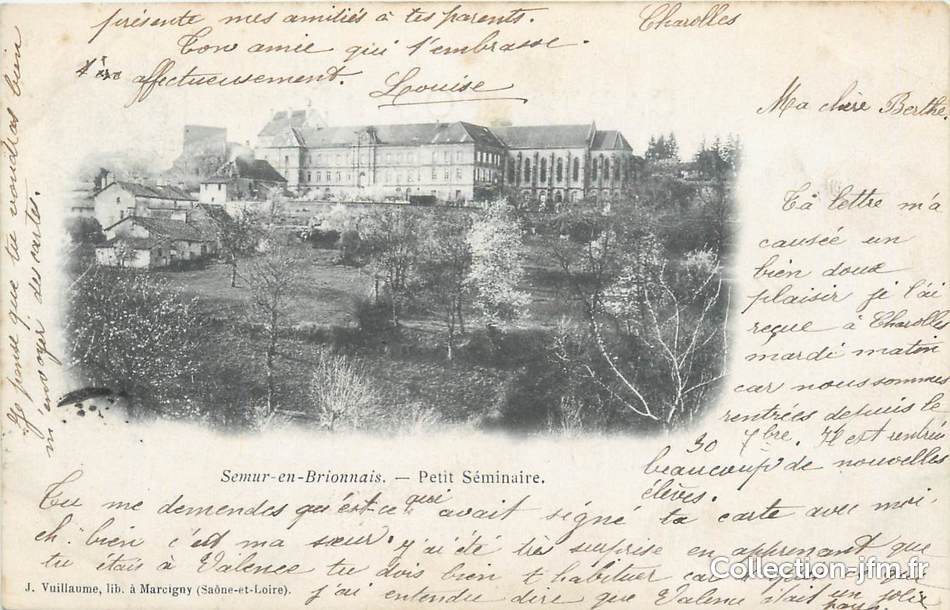 Charolles
Ma chère Berthe,
Ta lettre m'a
causée un
bien doux
plaisir je l'ai
reçue à Charolles
mardi matin
car nous sommes
rentrées depuis le
30 7bre. Il est rentrée
beaucoup de nouvelles
élèves.
Tu me demandes qu'est-ce qui avait signé ta carte avec moi-
eh. bien c'est ma sœur. j'ai été très surprise en apprenant que
tu étais à Valence tu dois bien t'habituer car
j'ai entendu dire que Valence était un jolie
pays.
Je pense que tu voudras bien
m'envoyer des cartes.
présente mes amitiés à tes parents.
Ton amie qui t'embrasse
affectueusement.
Louise
Semur-en-Brionnais. — Petit Séminaire.
J. Vuillaume, lib. à Marcigny (Saône-et-Loire).
Collection-jfm.fr